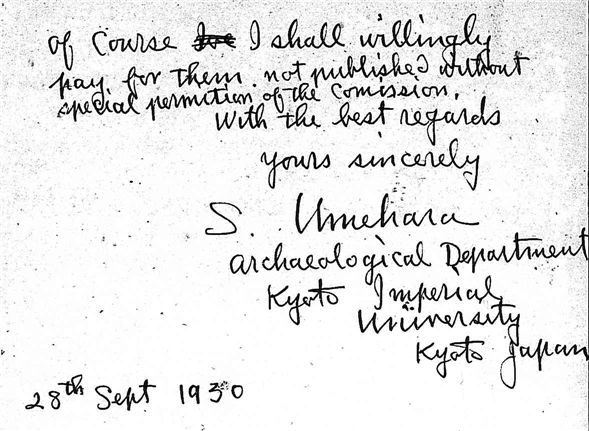 of Course I shall willingly
pay for them. not published without
special permition of the Comission.
With the best regards
yours sincerely
S. Umehara
archaeological Department
Kyoto Imperial
University
Kyoto Japan
28th Sept 1930